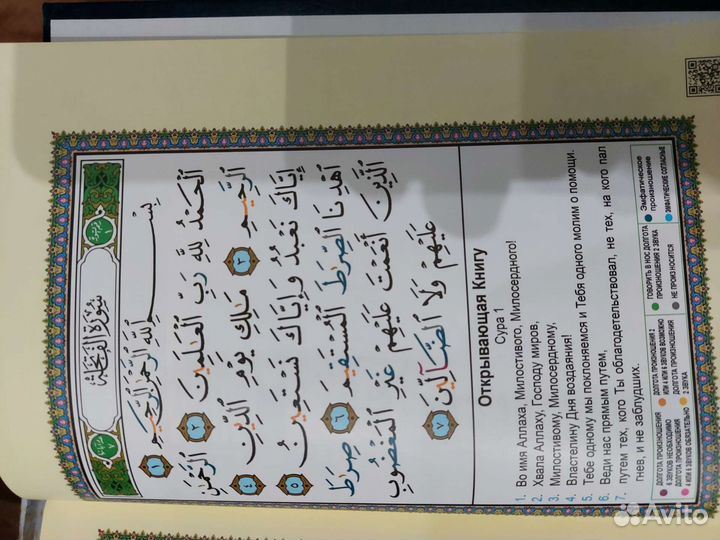 سُورَةُ الفَاتِحَةِ
بِسْمِ ٱللَّهِ ٱلرَّحْمَٰنِ ٱلرَّحِيمِ ١
ٱلْحَمْدُ لِلَّهِ رَبِّ ٱلْعَٰلَمِينَ ٢ ٱلرَّحْمَٰنِ
ٱلرَّحِيمِ ٣ مَٰلِكِ يَوْمِ ٱلدِّينِ ٤
إِيَّاكَ نَعْبُدُ وَإِيَّاكَ نَسْتَعِينُ ٥
ٱهْدِنَا ٱلصِّرَٰطَ ٱلْمُسْتَقِيمَ ٦ صِرَٰطَ
ٱلَّذِينَ أَنْعَمْتَ عَلَيْهِمْ غَيْرِ ٱلْمَغْضُوبِ
عَلَيْهِمْ وَلَا ٱلضَّآلِّينَ ٧
Открывающая Книгу
Сура 1
1. Во имя Аллаха, Милостивого, Милосердного!
2. Хвала Аллаху, Господу миров,
3. Милостивому, Милосердному,
4. Властелину Дня воздаяния!
5. Тебе одному мы поклоняемся и Тебя одного молим о помощи.
6. Веди нас прямым путем,
7. путем тех, кого Ты облагодетельствовал, не тех, на кого пал
гнев, и не заблудших.
ДОЛГОТА ПРОИЗНОШЕНИЯ
6 ЗВУКОВ НЕОБХОДИМО
ДОЛГОТА ПРОИЗНОШЕНИЯ
4 ИЛИ 5 ЗВУКОВ ОБЯЗАТЕЛЬНО
ДОЛГОТА ПРОИЗНОШЕНИЯ 2
ИЛИ 4 ИЛИ 6 ЗВУКОВ ВОЗМОЖНО
ДОЛГОТА ПРОИЗНОШЕНИЯ
2 ЗВУКА
ГОВОРИТЬ В НОС ДОЛГОТА
ПРОИЗНОШЕНИЯ 2 ЗВУКА
НЕ ПРОИЗНОСИТСЯ
Эмфатическое
произношение
ЭМФАТИЧЕСКИЕ СОГЛАСНЫЕ
Avito